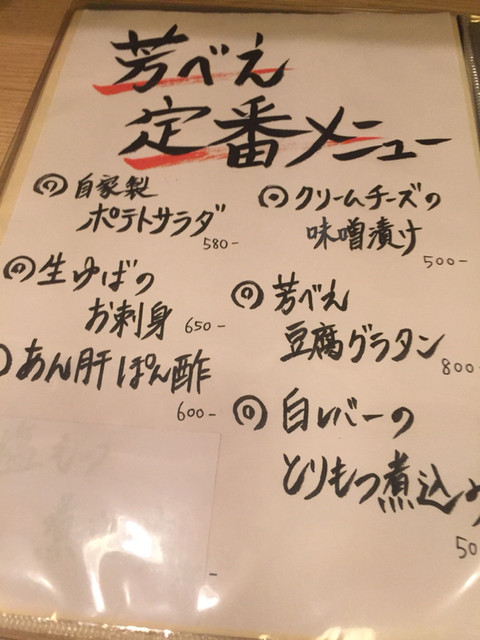 芳べえ
定番メニュー
自家製
ポテトサラダ
580-
生ゆばの
お刺身 650-
あん肝ぽん酢
600-
クリームチーズの
味噌漬け
500-
芳べえ
豆腐グラタン
800-
白レバーの
とりもつ煮込み
50